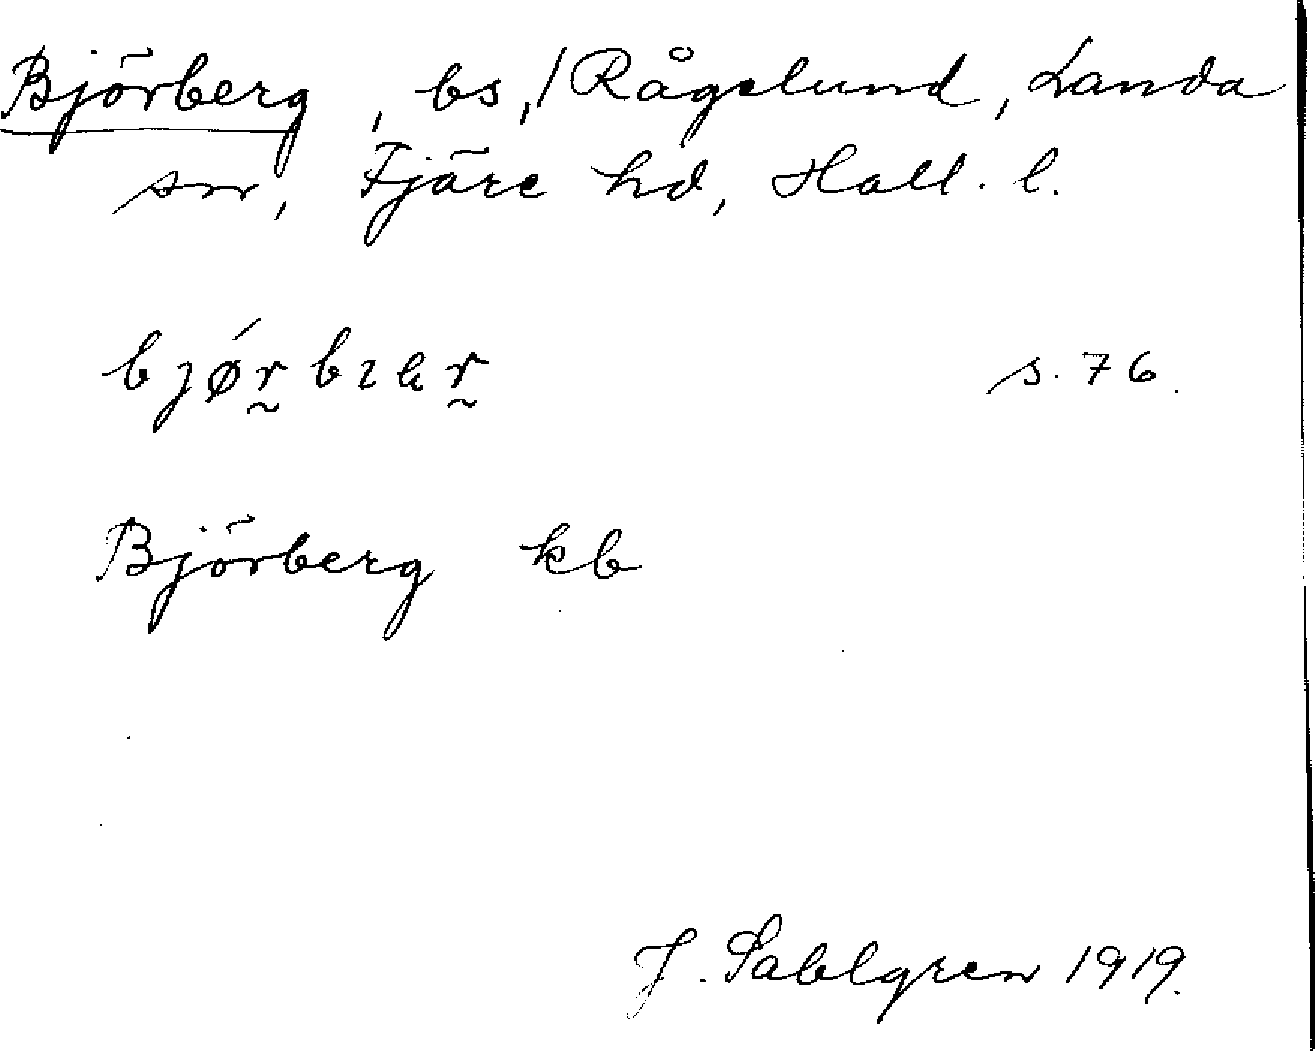 Björberg, bs, / Rågelund, Landa
sn, Fjäre hd, Hall. l.
s. 76.
Björberg kb
J. Sahlgren 1919.